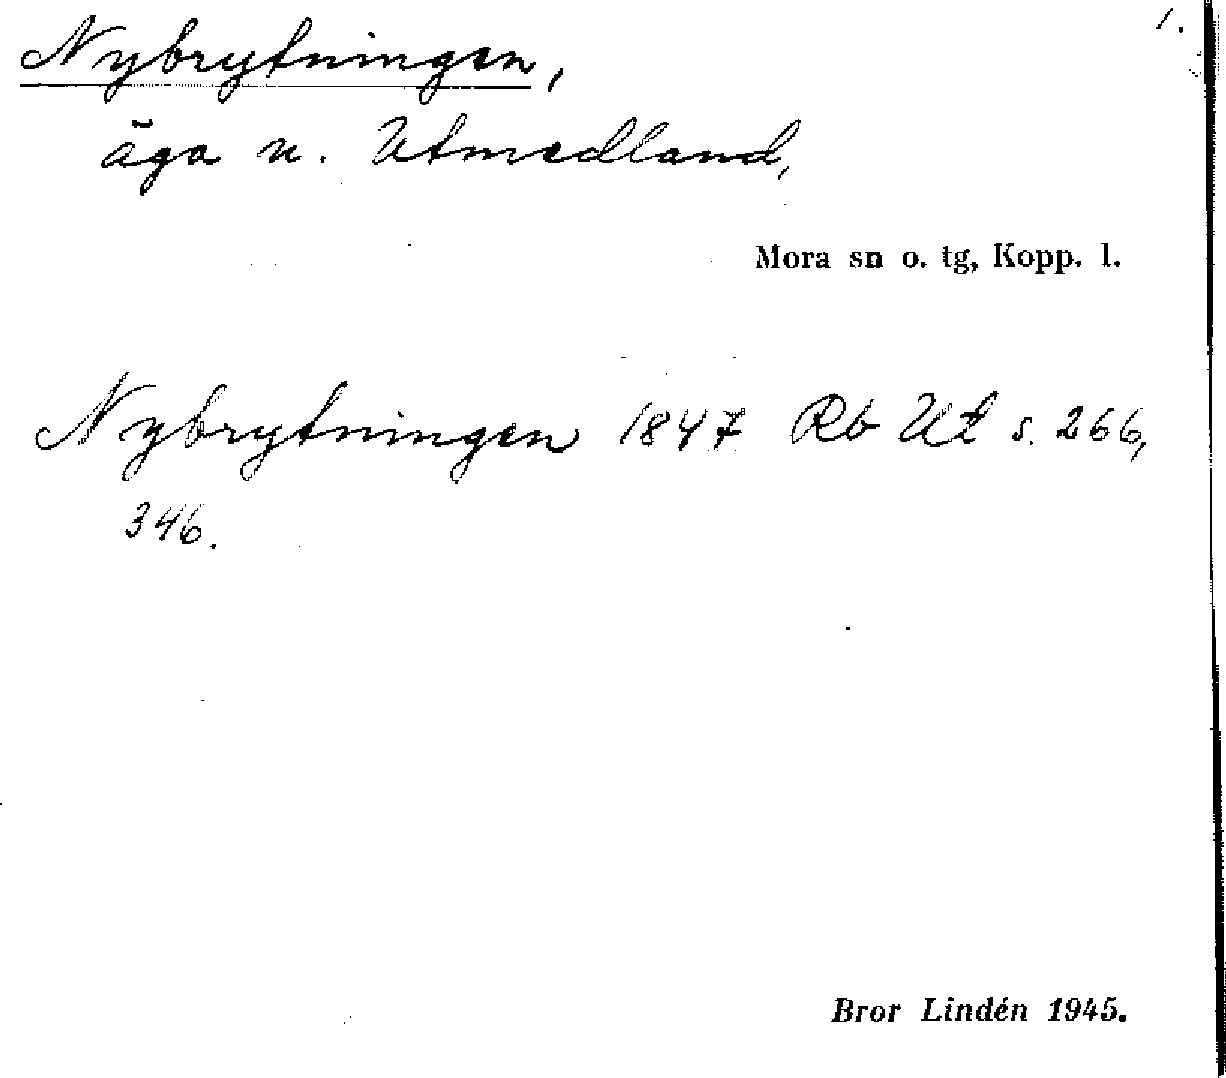 1.
Nybrytningen,
äga u. Utmedland,
Mora sn o. tg, Kopp. l.
Nybrytningen 1847 Rb Ut s. 266,
346.
Bror Lindén 1945.